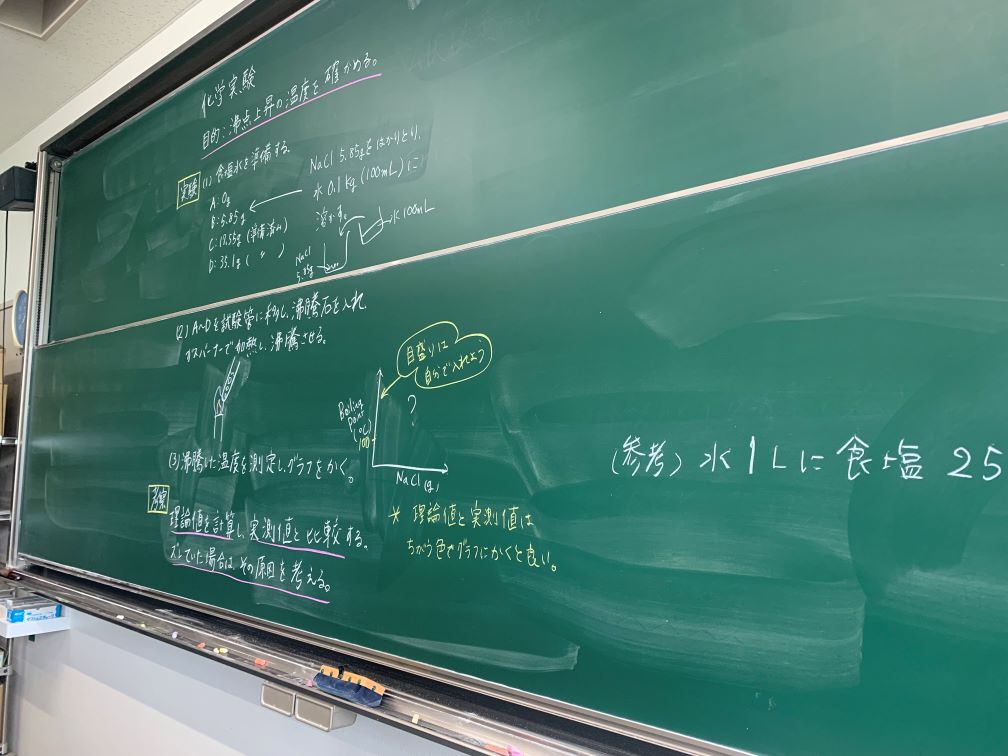 化学実験
目的：沸点上昇の温度を確かめる。
実験 (1) 食塩水を準備する。
A：0g
B：5.85g
C：17.55g (準備済み)
D：35.1g ( 〃 )
NaCl 5.85gをはかりとり、
水 0.1 kg (100mL) に
溶かす。
水100mL
NaCl
5.85g
(2) A〜Dを試験管に移し、沸騰石を入れ、
ガスバーナーで加熱し、沸騰させる。
(3) 沸騰した温度を測定し、グラフをかく。
Boiling
Point
(℃)
100
?
NaCl (g)
目盛りは
自分で入れよう
考察
理論値を計算し、実測値と比較する。
ズレていた場合は、その原因を考える。
* 理論値と実測値は
ちがう色でグラフにかくと良い。
(参考) 水1Lに食塩 25